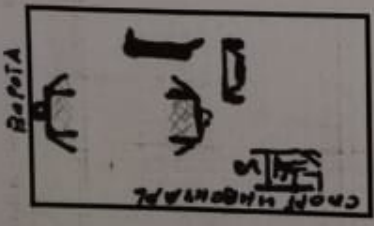 ВОРОТА
СПОРТ ИНВЕНТАРЬ